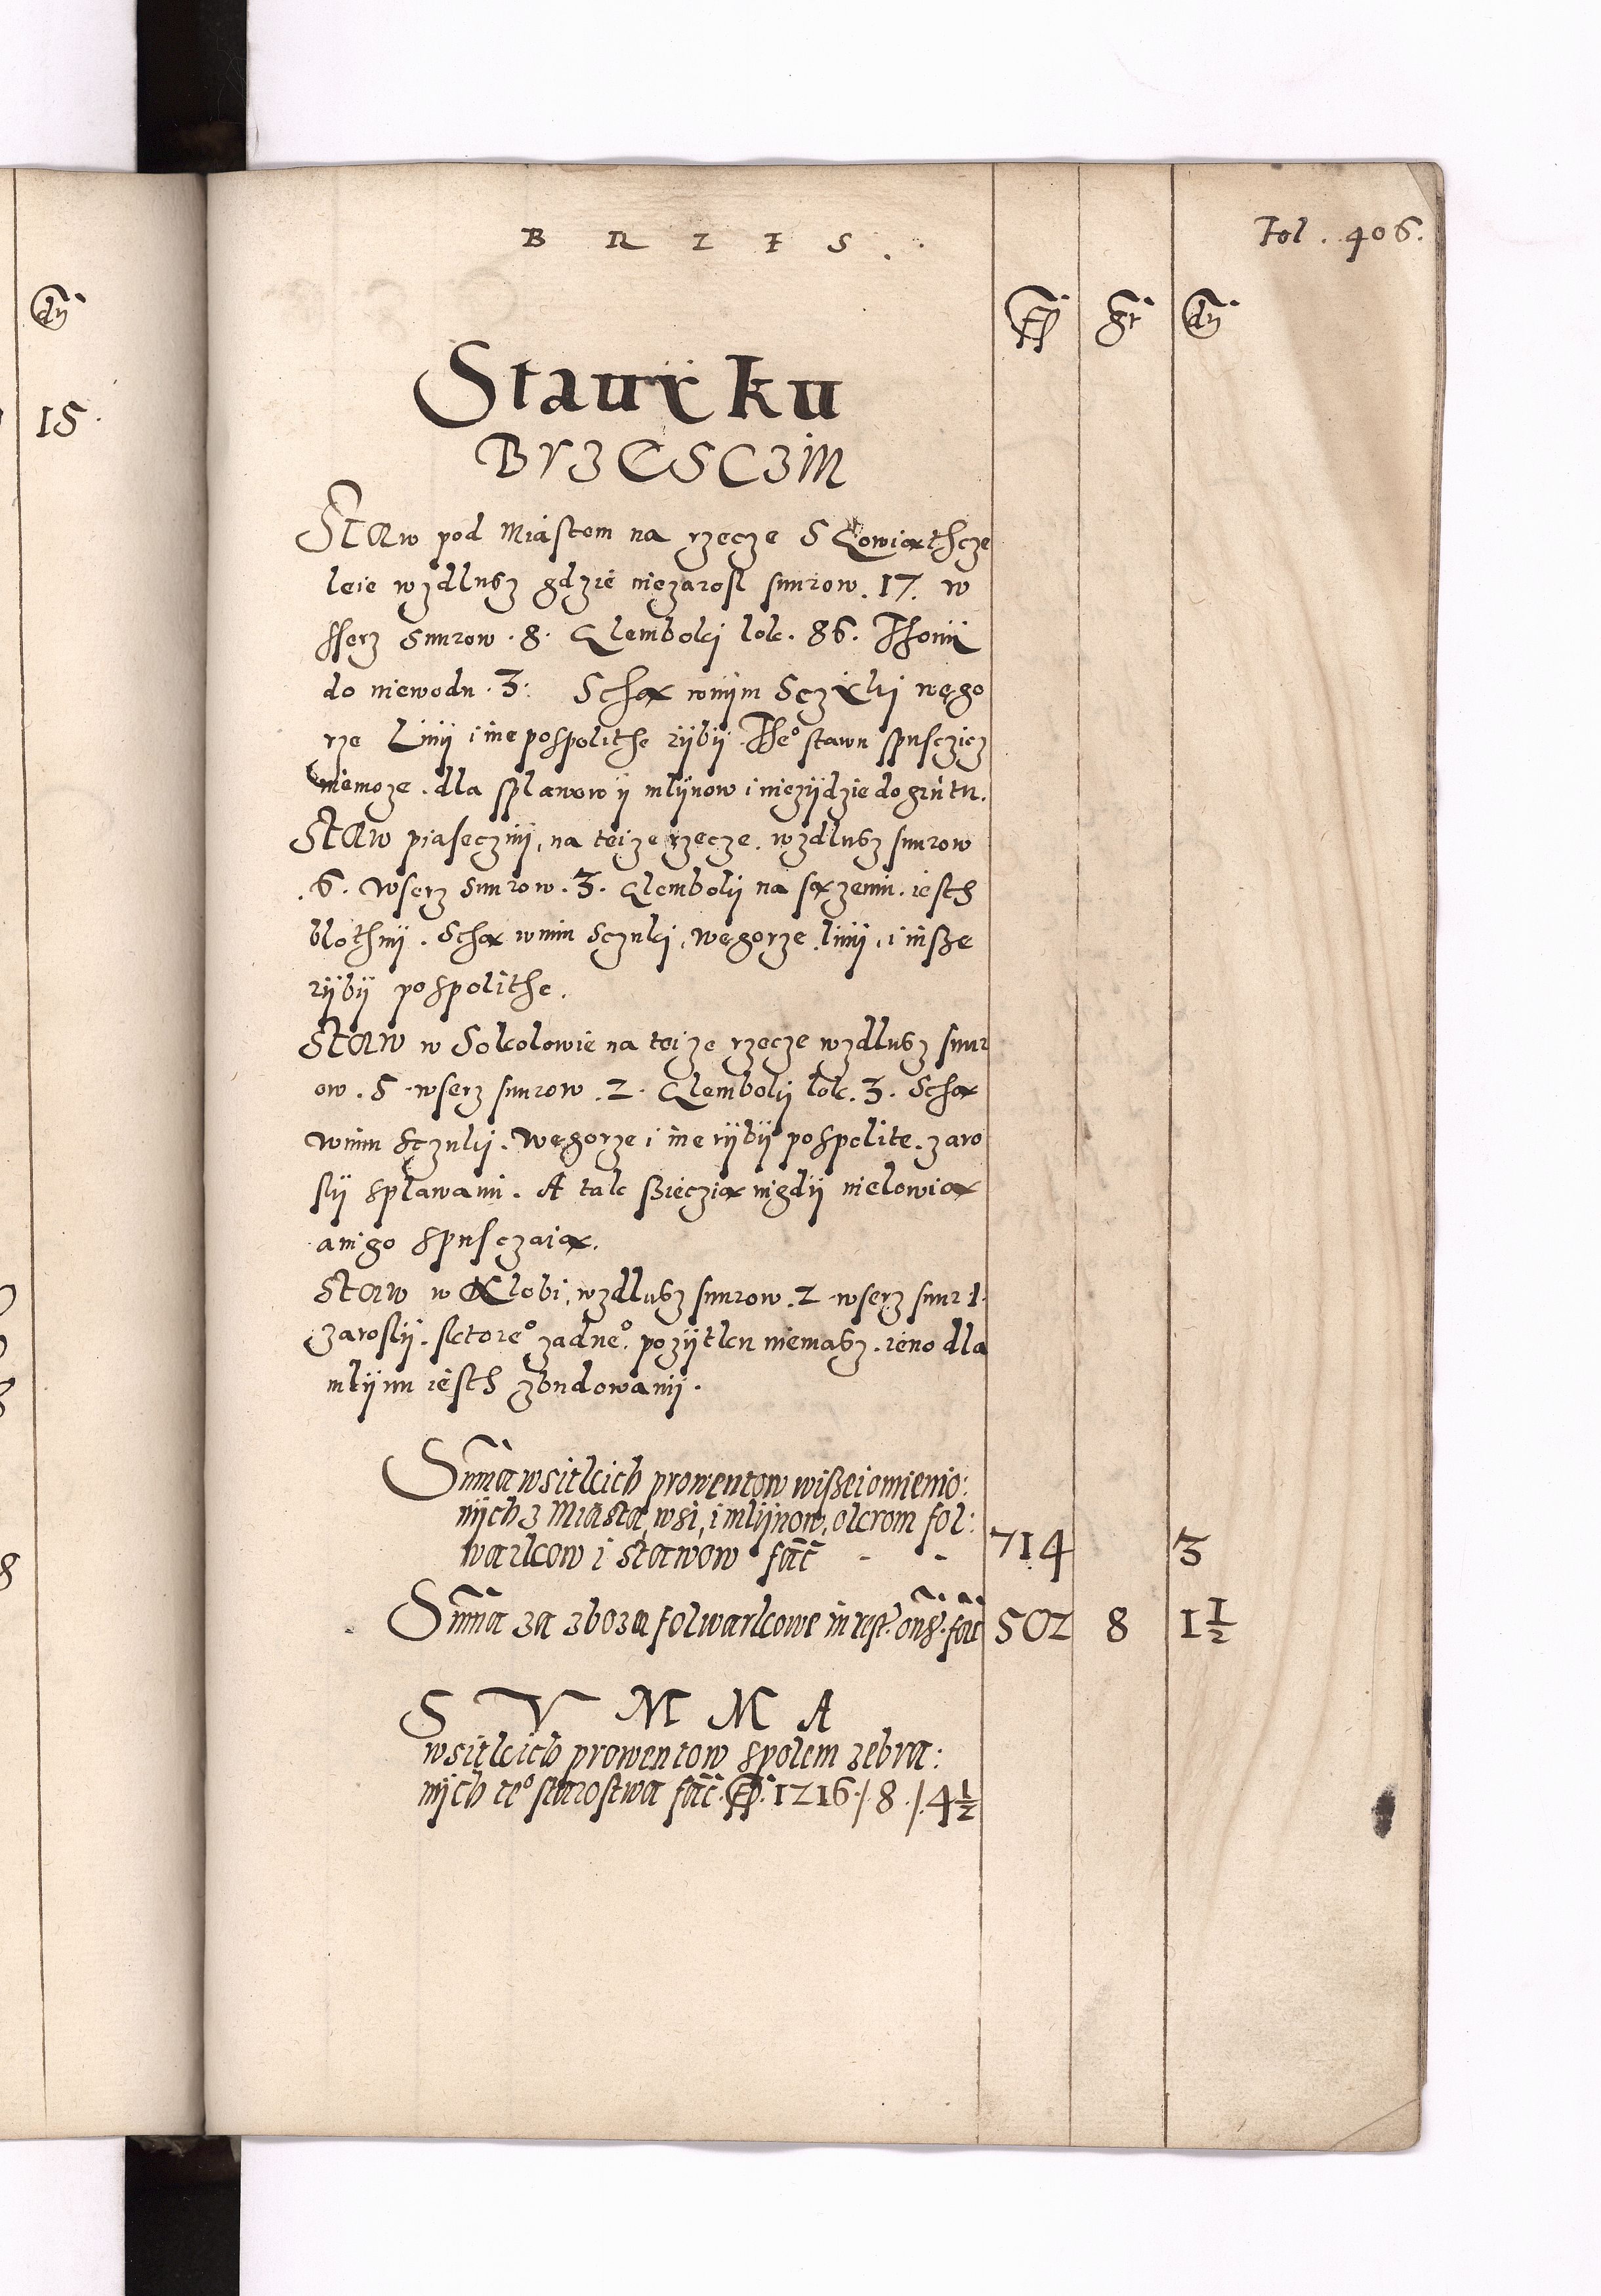 B R Z E S .
Fol . 406.
fl gr dn
dn
15.
Stawy ku
Brzesczim
Staw pod Miastem na rzecze SLowiathcze
leie wzdlusz gdzie niezarosl snurow . 17. w
sserz snurow . 8. Glemboki lok. 86. Thonij
do niewodu . 3. Scha wnijm Sczuki węgo
rze Linij i ine pospolithe rijbij The° stawu spusczicz
niemoze . dla splawow ij mlijnow i niezijdzie do grutu.
Staw piasecznij, na teize rzecze. wzdlusz snurow
.6. Wserz snurow . 3. Glembokij na sazenu. iesth
blothnij . Scha wnim Sczuki, Węgorze linij, i insze
rijbij pospolithe.
Staw w Sokolowie na teize rzecze wzdlusz snur
ow . 5 . wserz snurow . 2. Glembokij lok. 3. Scha
wnim sczukij . Węgorze i ine rijbij pospolite . zaro
slij splawami . A tak sziecia nigdij nielowia
ani go spusczaia.
Staw w Klobi, wzdlusz snurow . 2 . wserz snur 1.
zaroslij . ktore° zadne° pozijtku niemasz . ieno dla
mlijnu iesth zbudowanij .
Suma wsitkich prowentow wiszeiomienio:
nijch z Miasta, wsi, i mlijnow, okrom fol:
warkow i stawow fac̃ - - 714 3
Suma za zboza folwarkowe in rest. fac̃ 502 8 1 1/2
S V M M A
wsitkich prowentow spolem zebra:
nijch te° starostwa fac̃. fl. 1216 /. 8 . /. 4 1/2